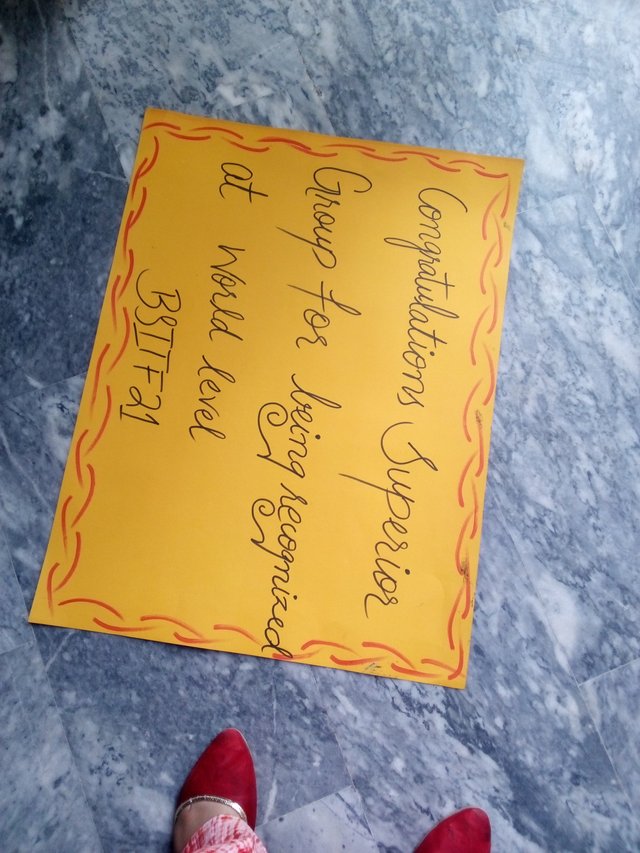 Congratulations Superior
Group for being recognized
at World level
BSITF21